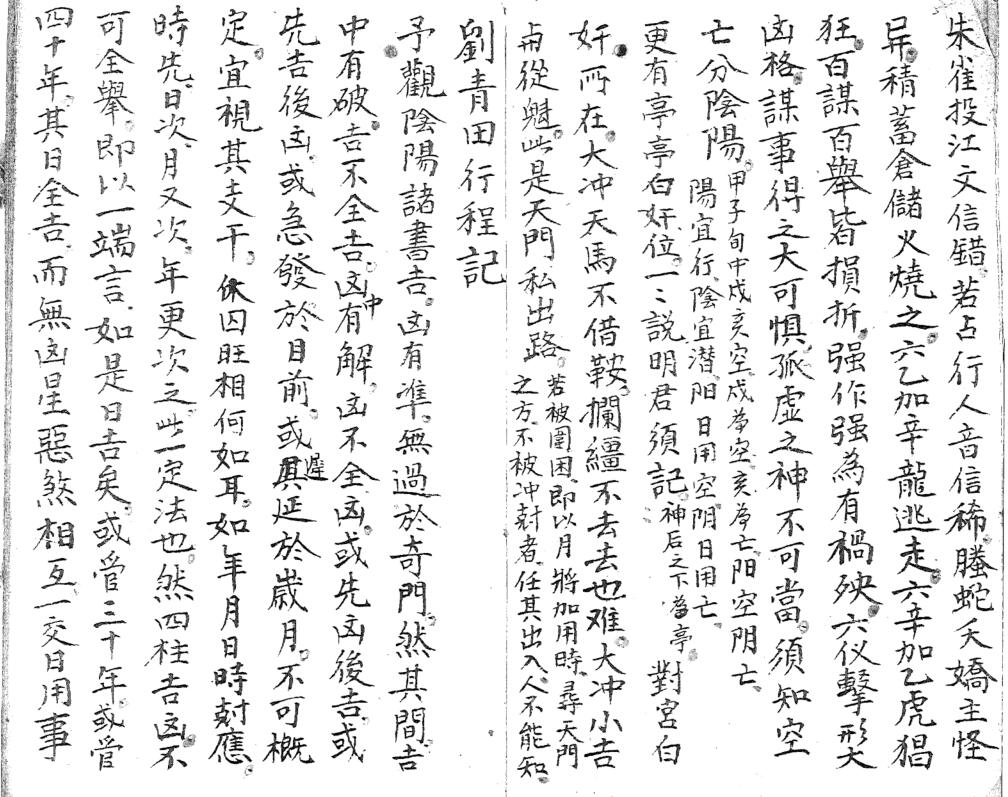 朱雀投江文信錯。若占行人音信稀。螣蛇夭嬌主怪
异。積蓄倉儲火燒之。六乙加辛龍逃走。六辛加乙虎猖
狂。百謀百舉皆損折。强作强為有禍殃。六仪擊形大
凶格。謀事得之大可惧。孤虛之神不可當。須知空
亡分陰陽。甲子旬中戍亥空。戍為空。亥為亡。阳空阴亡。
陽宜行。陰宜潜。阳日用空。阴日用亡。
更有亭亭白奸位。一二說明君須記。神后之下為亭。對宮白
奸。所在。大冲天馬不借鞍。攔繮不去去也难。大冲小吉
與從魁。此是天門私出路。若被圍困。即以月將加用時。尋天門
之方。不被冲尅者。任其出入。人不能知。
劉青田行程記
予觀陰陽諸書吉。凶有準。無過於奇門。然其間。吉
中有破。吉不全吉。凶中有解。凶不全凶。或先凶後吉。或
先吉後凶。或急發於目前。或遲延於歲月。不可概
定。宜視其支干。休囚旺相何如耳。如年月日時尅應。
時先。日次。月又次。年更次之。此一定法也。然四柱吉凶不
可全舉。即以一端言。如是日吉矣。或管三十年。或管
四十年。其日全吉。而無凶星惡煞相互一交日用事